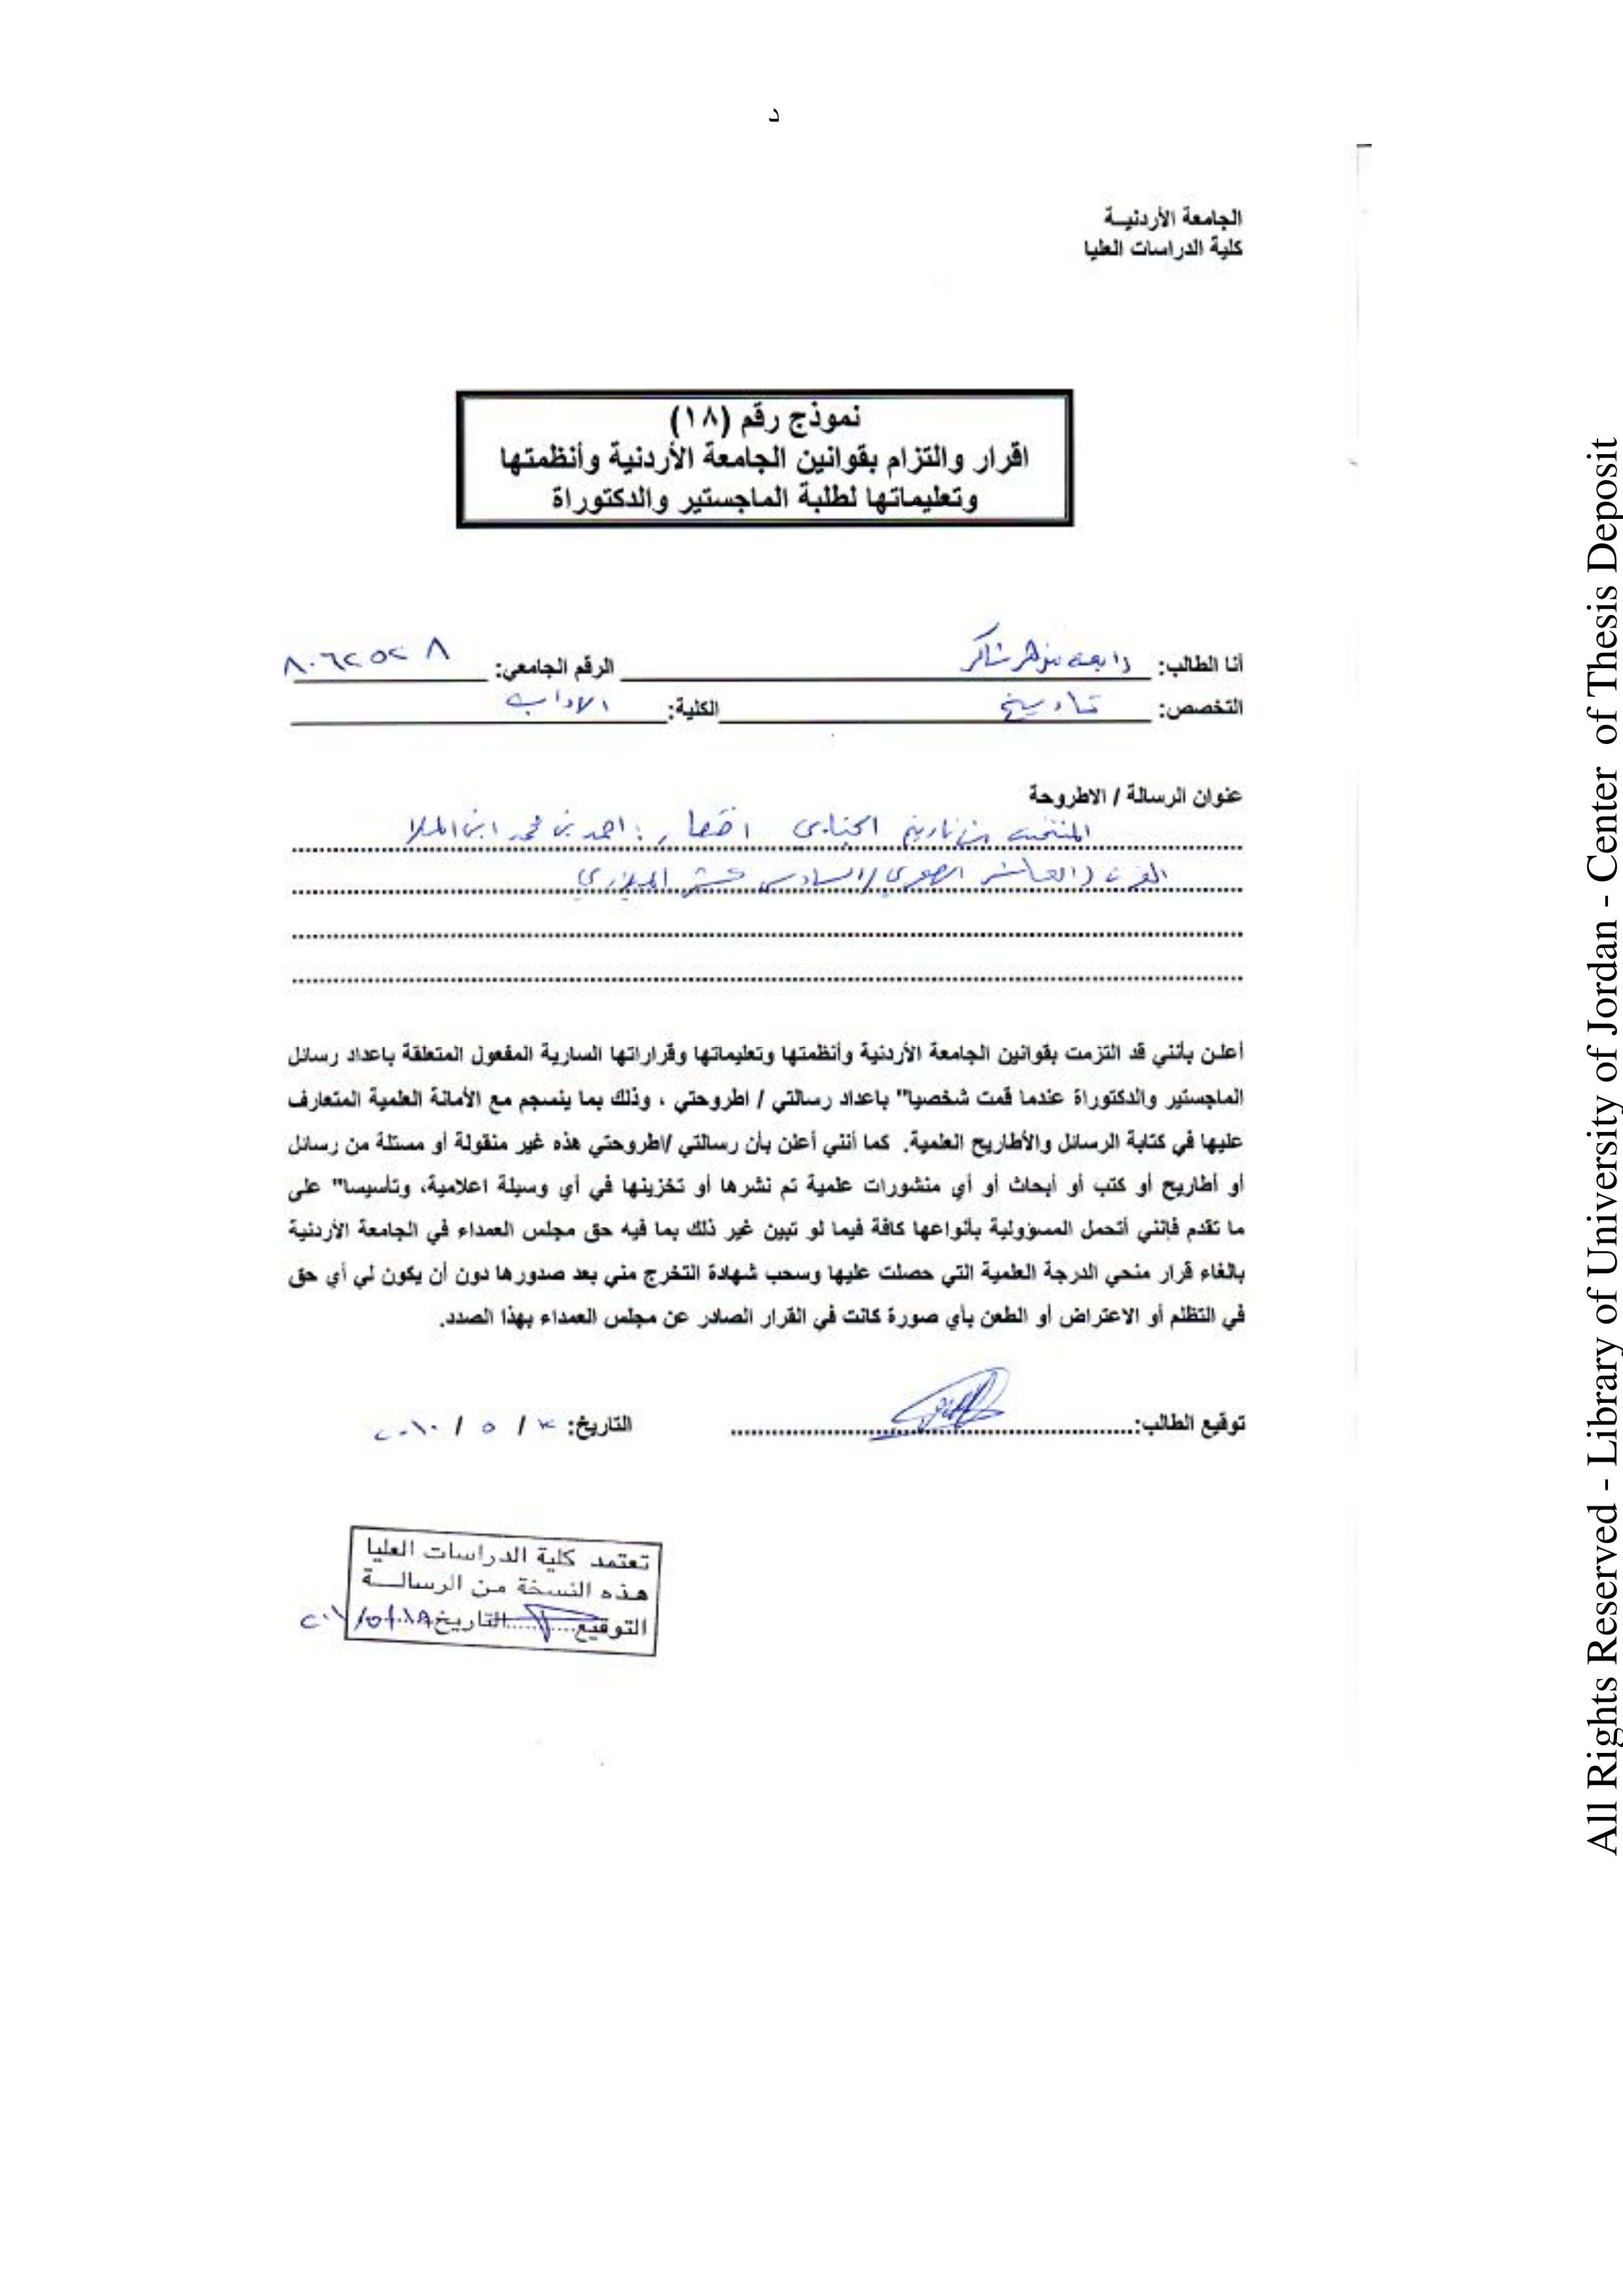 د
الجامعة الأردنيـة
كلية الدراسات العليا
نموذج رقم (١٨)
اقرار والتزام بقوانين الجامعة الأردنية وأنظمتها
وتعليماتها لطلبة الماجستير والدكتوراة
أنا الطالب: رابعه مزهر شاكر الرقم الجامعي: ٨٠٦٢٥٢٨
التخصص: تاريخ الكلية: الاداب
عنوان الرسالة / الاطروحة
المنتخب من تاريخ الجنابي : احمد بن محمد ابن الملا
القرن (العاشر الهجري/السادس عشر الميلادي)
أعلن بأنني قد التزمت بقوانين الجامعة الأردنية وأنظمتها وتعليماتها وقراراتها السارية المفعول المتعلقة باعداد رسائل
الماجستير والدكتوراة عندما قمت شخصيا" باعداد رسالتي / اطروحتي ، وذلك بما ينسجم مع الأمانة العلمية المتعارف
عليها في كتابة الرسائل والأطاريح العلمية. كما أنني أعلن بأن رسالتي /اطروحتي هذه غير منقولة أو مستلة من رسائل
أو أطاريح أو كتب أو أبحاث أو أي منشورات علمية تم نشرها أو تخزينها في أي وسيلة اعلامية، وتأسيسا" على
ما تقدم فإنني أتحمل المسؤولية بأنواعها كافة فيما لو تبين غير ذلك بما فيه حق مجلس العمداء في الجامعة الأردنية
بالغاء قرار منحي الدرجة العلمية التي حصلت عليها وسحب شهادة التخرج مني بعد صدورها دون أن يكون لي أي حق
في التظلم أو الاعتراض أو الطعن بأي صورة كانت في القرار الصادر عن مجلس العمداء بهذا الصدد.
توقيع الطالب: التاريخ: / ٥ / ٢٠١٠
تعتمد كلية الدراسات العليا
هذه النسخة من الرسالــة
التوقيع التاريخ
All Rights Reserved - Library of University of Jordan - Center of Thesis Deposit